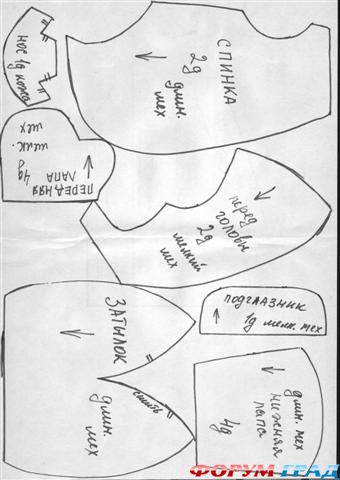 нос 1д кожа
СПИНКА
2д
длин.
мех
ПЕРЕДНЯЯ
ЛАПА
4д
мелк.
мех
перед
головы
2д
мелкий
мех
ПОДГЛАЗНИК
1д мелк. мех
ЗАТЫЛОК
сшить
длин.
мех
длин. мех
нижняя
лапа
4д
ФОРУМ-ГРАД